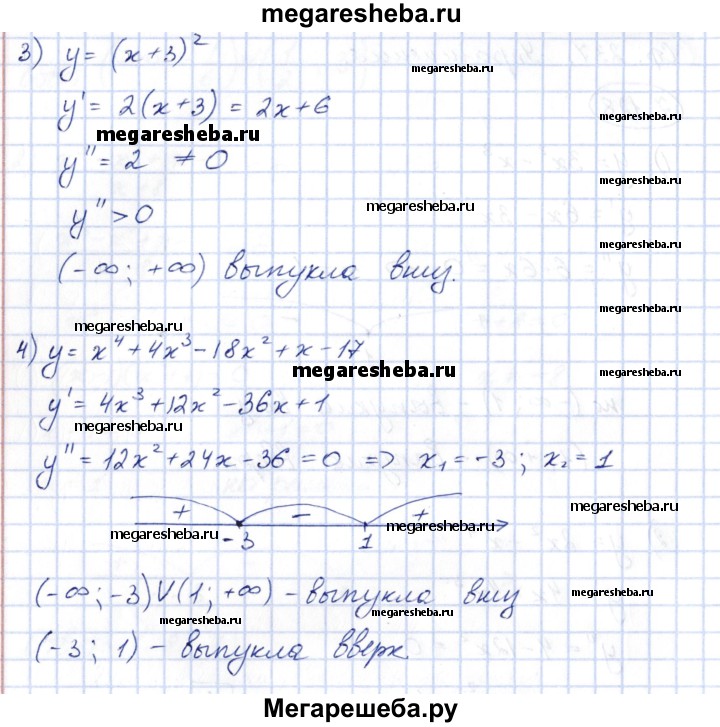 megaresheba.ru
3) y = (x+3)²
megaresheba.ru
y' = 2(x+3) = 2x+6
megaresheba.ru
y'' = 2 ≠ 0
megaresheba.ru
y'' > 0
megaresheba.ru
megaresheba.ru
(-∞; +∞) выпукла вниз.
megaresheba.ru
4) y = x⁴+4x³-18x²+x-17
megaresheba.ru
megaresheba.ru
y' = 4x³+12x²-36x+1
megaresheba.ru
megaresheba.ru
y'' = 12x²+24x-36 = 0 => x₁ = -3; x₂ = 1
+ - +
megaresheba.ru
megaresheba.ru
megaresheba.ru
-3 1
(-∞; -3) V (1; +∞) - выпукла вниз
megaresheba.ru
megaresheba.ru
(-3; 1) - выпукла вверх
megaresheba.ru
Мегарешеба.ру